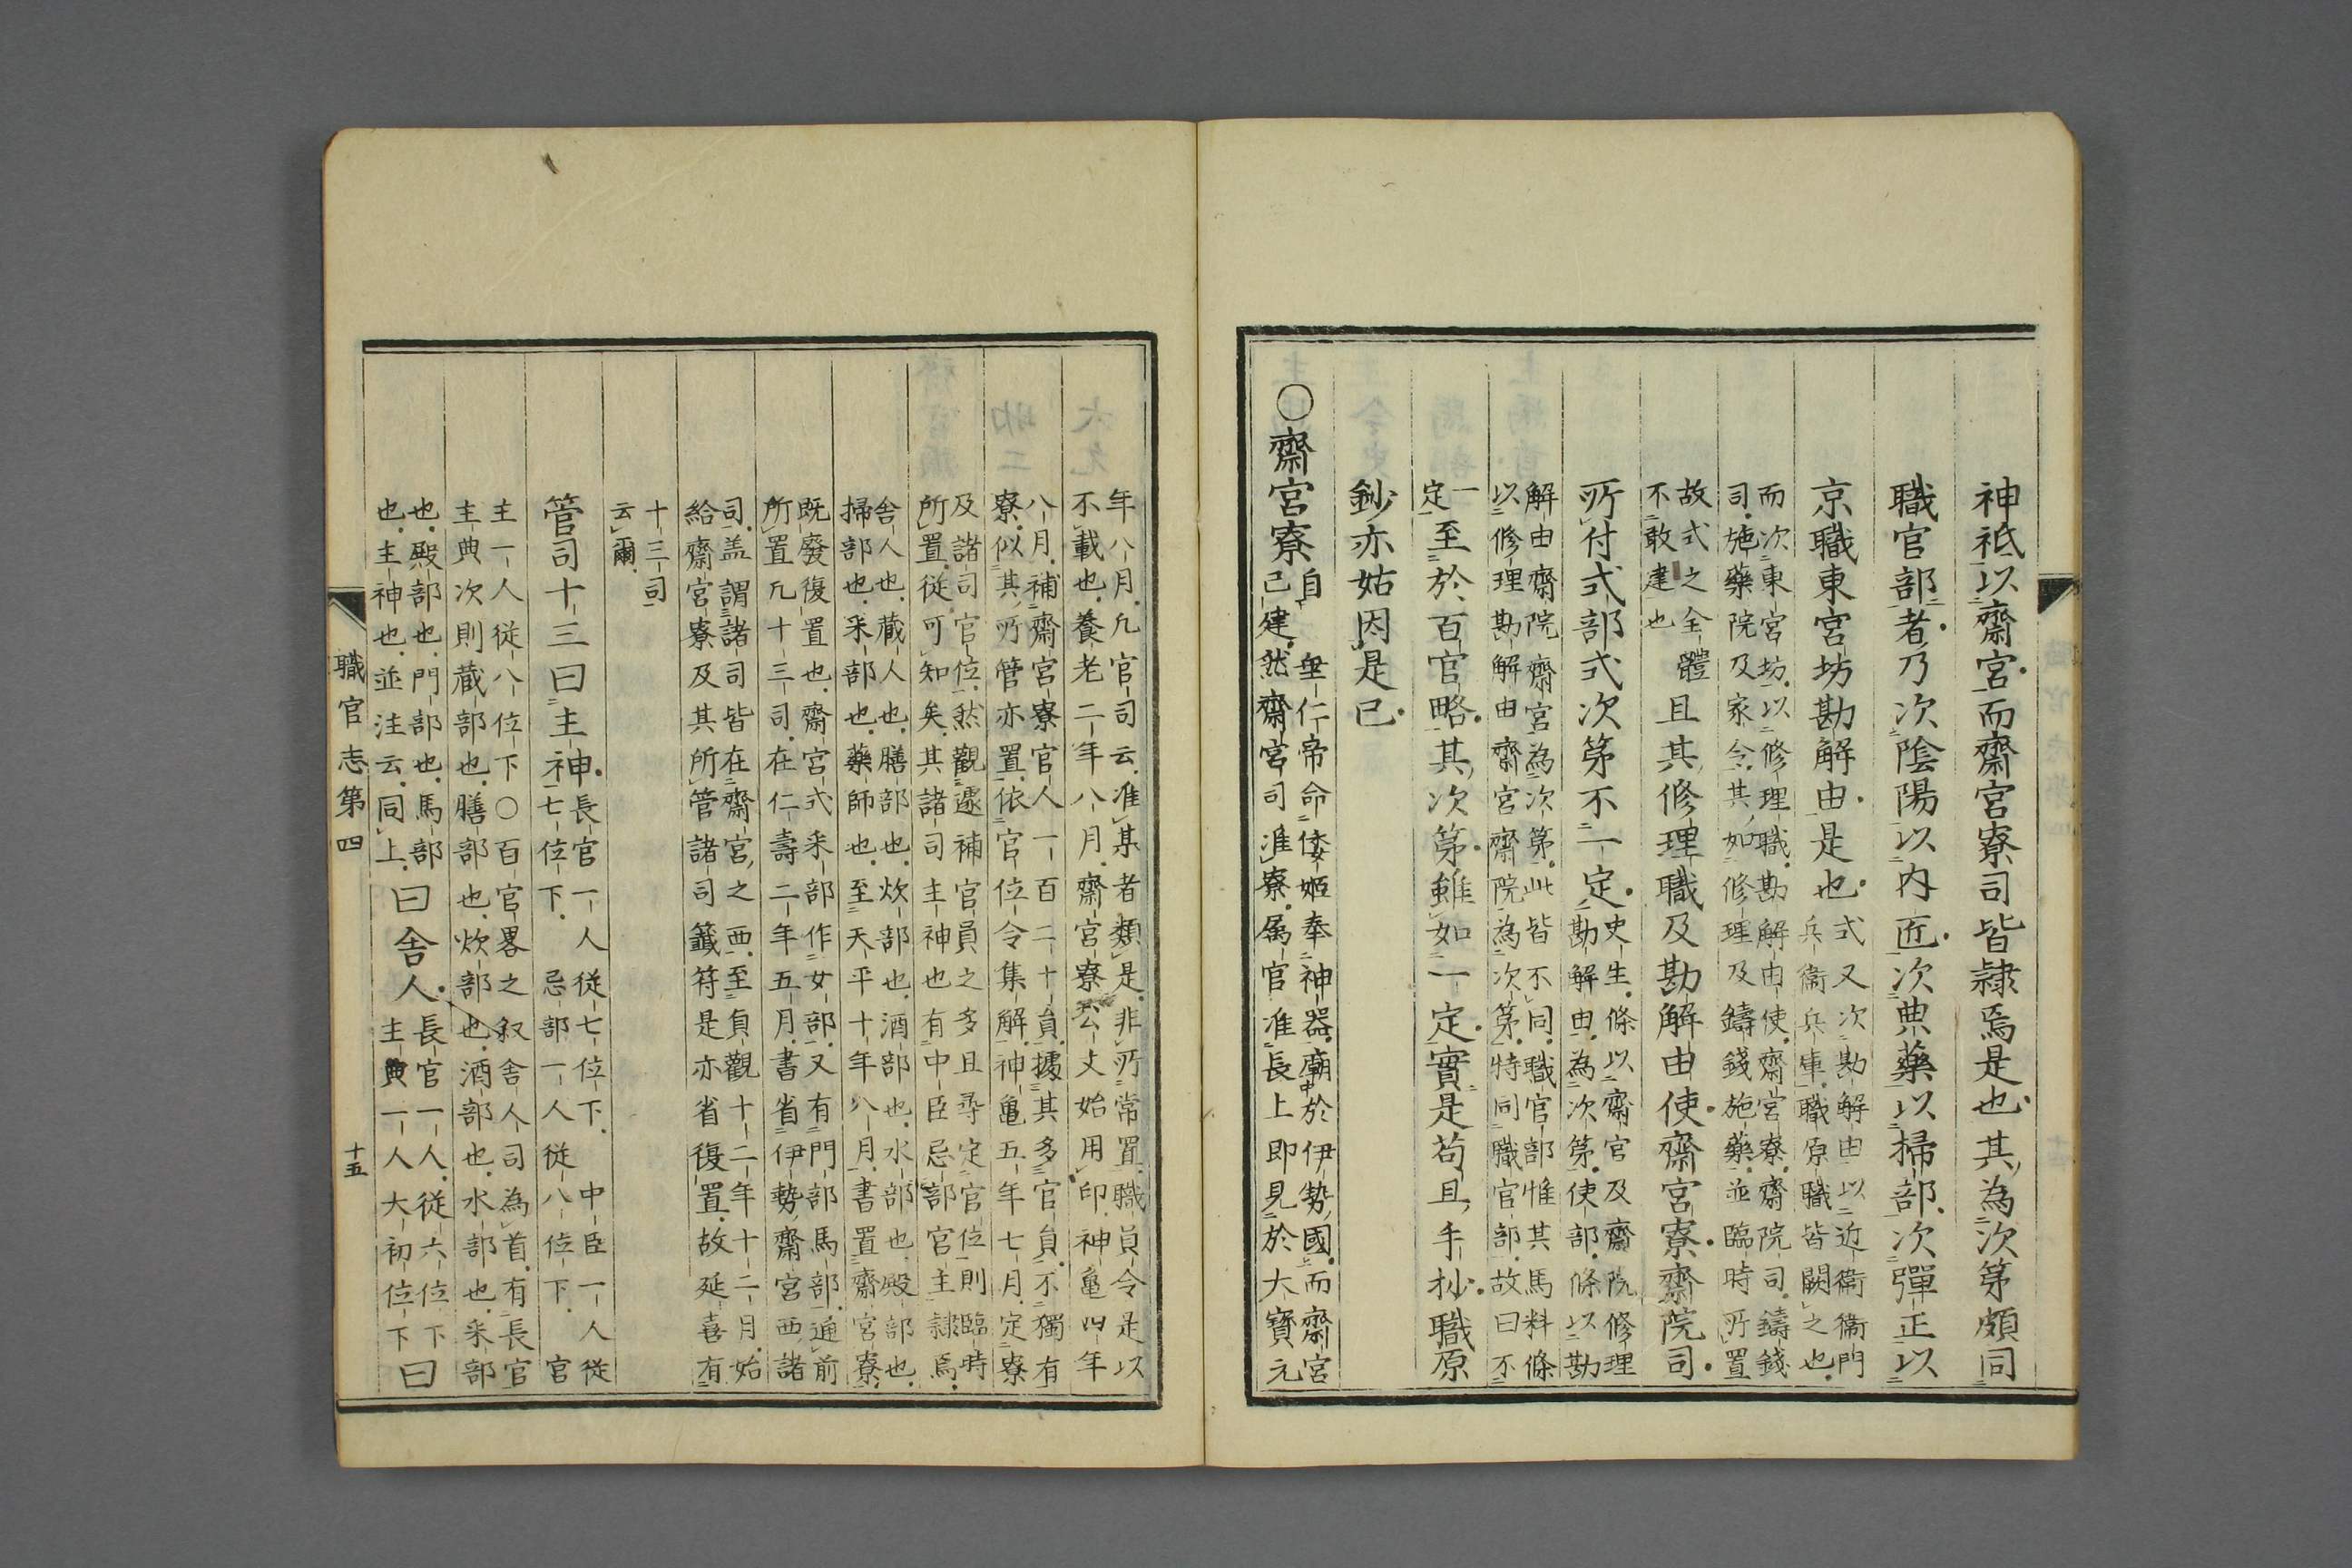 神祇以齋宮而齋宮寮司皆隷焉是也其為次第頗同
職官部者乃次陰陽以内匠次典藥以掃部次彈正以
京職東宮坊勘解由是也式又次勘解由以近衞衞門
兵衞兵庫職原職皆闕之也
而次東宮坊以修理職勘解由使齋宮寮齋院司鑄錢
司施藥院及家令其如修理及鑄錢施藥並臨時所置
故式之全體
不敢建也
且其修理職及勘解由使齋宮寮齋院司
所付式部式次第不一定史生條以齋官及齋院修理
勘解由為次第使部條以勘
解由齋院齋宮為次第此皆不同職官部惟其馬料條
以修理勘解由齋宮齋院為次第特同職官部故曰不
一
定
至於百官略其次第雖如一定實是苟且手抄職原
鈔亦姑因是已
○齋宮寮自垂仁帝命倭姬奉神器廟於伊勢國而齋宮
已建然齋宮司准寮属官准長上即見於大寶元
年八月凡官司云准某者類是非所常置職員令是以
不載也養老二年八月齋宮寮公文始用印神龜四年
八月補齋宮寮官人一百二十員據其多官員不獨有
寮似其所管亦置依官位令集解神龜五年七月定寮
及諸司官位然觀遽補官員之多且尋定官位則臨時
所置從可知矣其諸司主神也有中臣忌部官主隷焉
舍人也藏人也膳部也炊部也酒部也水部也殿部也
掃部也采部也藥師也至天平十年八月書置齋宮寮
既廢復置也齋宮式采部作女部又有門部馬部通前
所置凡十三司在仁壽二年五月書省伊勢齋宮西諸
司盖謂諸司皆在齋宮之西至貞觀十二年十二月始
給齋宮寮及其所管諸司籤符是亦省復置故延喜有
十三司
云爾
管司十三曰主神長官一人從七位下中臣一人從
七位下忌部一人從八位下官
主一人從八位下○百官畧之叙舍人司為首有長官
主典次則藏部也膳部也炊部也酒部也水部也采部
也殿部也門部也馬部
也主神也並注云同上
曰舍人長官一人從六位下
主典一人大初位下
曰
職官志第四
十五